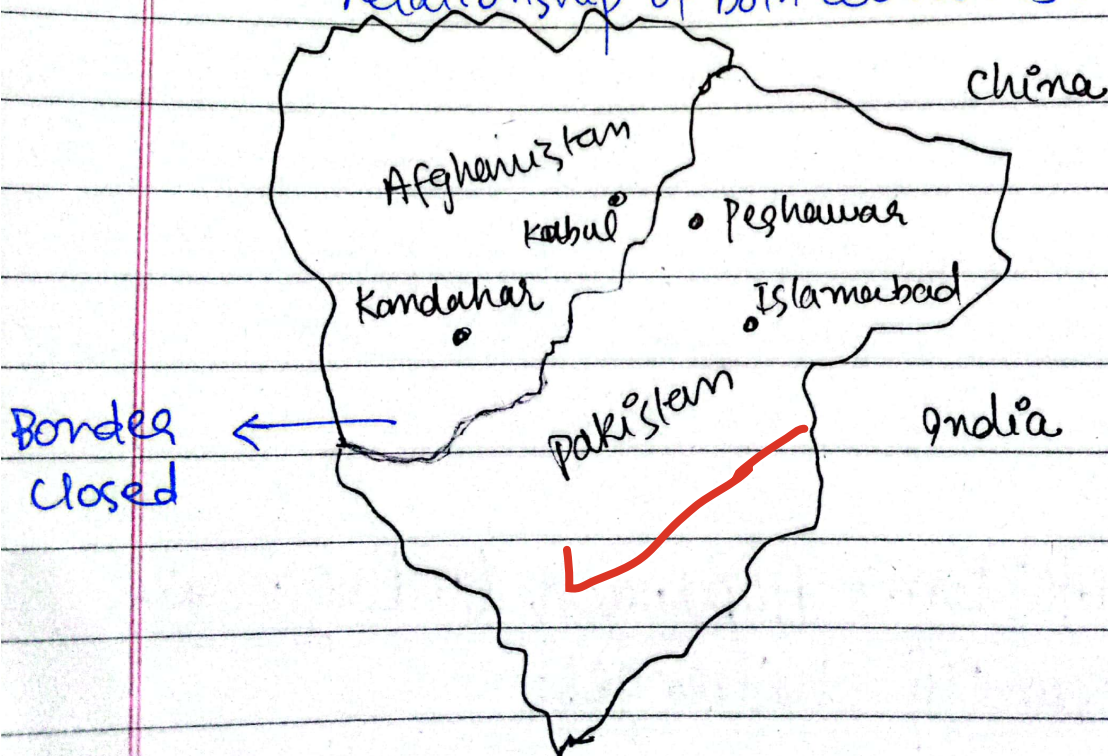 relationship of both
China
Afghanistan
Kabul
Peshawar
Kandahar
Islamabad
Pakistan
Border
closed
India